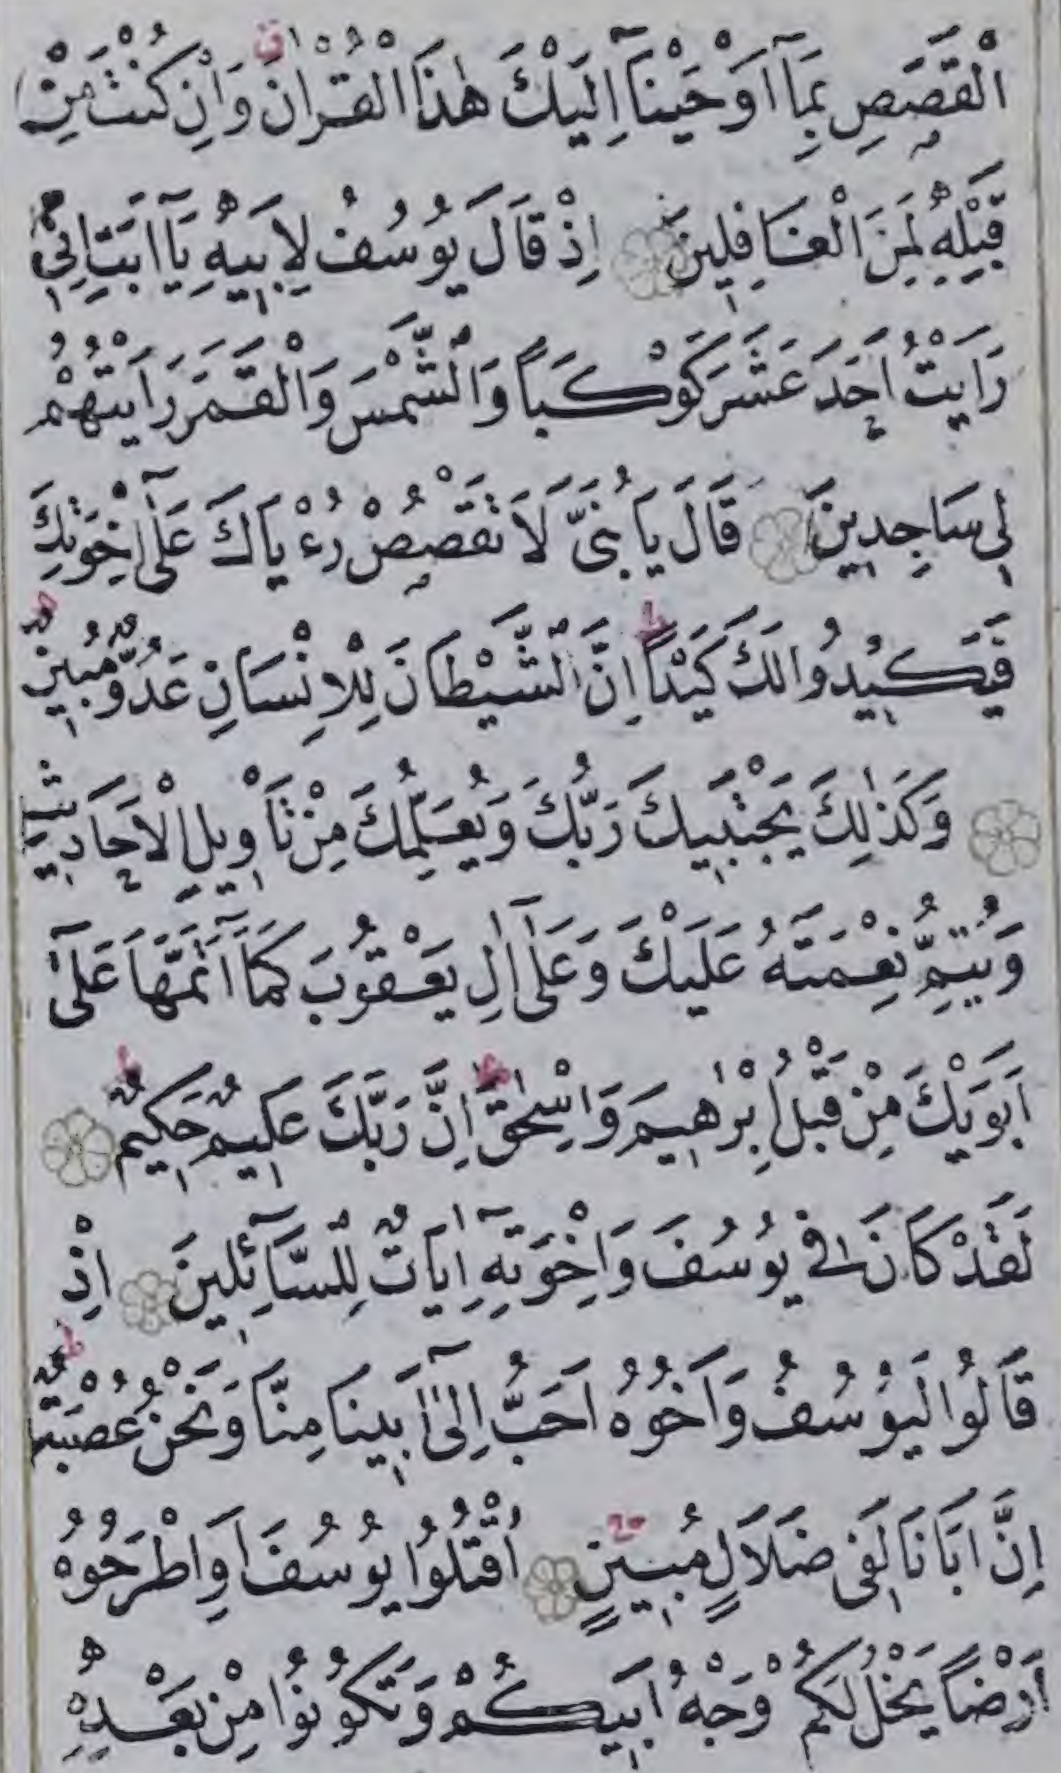 الْقَصَصِ بِمَآ اَوْحَيْنَآ اِلَيْكَ هٰذَا الْقُرْاٰنَ ق وَاِنْ كُنْتَ مِنْ
قَبْلِهٖ لَمِنَ الْغَافِلِينَ اِذْ قَالَ يُوسُفُ لِاَبِيهِ يَآ اَبَتِ اِنِّى
رَاَيْتُ اَحَدَ عَشَرَ كَوْكَبًا وَالشَّمْسَ وَالْقَمَرَ رَاَيْتُهُمْ
لِى سَاجِدِينَ قَالَ يَا بُنَىَّ لَا تَقْصُصْ رُءْيَاكَ عَلٰٓى اِخْوَتِكَ
فَيَكِيدُوا لَكَ كَيْدًا ط اِنَّ الشَّيْطَانَ لِلْاِنْسَانِ عَدُوٌّ مُبِينٌ
وَكَذٰلِكَ يَجْتَبِيكَ رَبُّكَ وَيُعَلِّمُكَ مِنْ تَاْوِيلِ الْاَحَادِيثِ
وَيُتِمُّ نِعْمَتَهُ عَلَيْكَ وَعَلٰٓى اٰلِ يَعْقُوبَ كَمَآ اَتَمَّهَا عَلٰٓى
اَبَوَيْكَ مِنْ قَبْلُ اِبْرٰهِيمَ وَاِسْحٰقَ ط اِنَّ رَبَّكَ عَلِيمٌ حَكِيمٌ
لَقَدْ كَانَ فِى يُوسُفَ وَاِخْوَتِهٖٓ اٰيَاتٌ لِلسَّآئِلِينَ اِذْ
قَالُوا لَيُوسُفُ وَاَخُوهُ اَحَبُّ اِلٰٓى اَبِينَا مِنَّا وَنَحْنُ عُصْبَةٌ ط
اِنَّ اَبَانَا لَفِى ضَلَالٍ مُبِينٍ اُقْتُلُوا يُوسُفَ اَوِ اطْرَحُوهُ
اَرْضًا يَخْلُ لَكُمْ وَجْهُ اَبِيكُمْ وَتَكُونُوا مِنْ بَعْدِهٖ